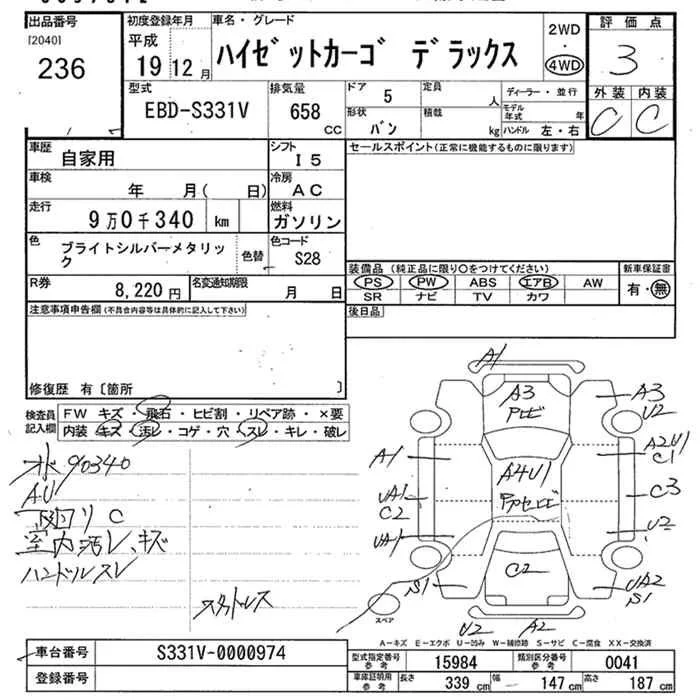 出品番号 初度登録年月 車名・グレード 2WD 評価点
[2040] 平成 ハイゼットカーゴ デラックス ・ 3
236 19年12月 4WD 外装 内装
型式 排気量 ドア 5 定員 人 ディーラー・並行 C C
EBD-S331V 658 CC 形状 バン 積載 kg モデル年式 年 ハンドル 左・右
車歴 自家用 シフト I5 セールスポイント(正常に機能するものに限ります)
車検 年 月( 日) 冷房 AC
走行 9万0千340 km 燃料 ガソリン
色 ブライトシルバーメタリック 色替 色コード S28
装備品 (純正品に限り○をつけてください) 新車保証書
PS PW ABS エアB AW 有・無
SR ナビ TV カワ
R券 8,220円 名変通知期限 月 日
後日品
注意事項申告欄(不具合内容等は具体的に記入して下さい)
修復歴 有〔箇所 〕
検査員記入欄 FW キズ・飛石・ヒビ割・リペア跡・×要
内装・キズ・汚レ・コゲ・穴・スレ・キレ・破レ
90340
AU
下回リC
室内汚レ、キズ
ハンドルスレ
スタットレス
A1
A3
A3
U2
A1
A4U1
A2U1
C1
UA1
C2
C3
UA1
U2
C2
S1
UA2
S1
スペア
U2 A2
A-キズ E-エクボ U-凹み W-補修跡 S-サビ C-腐食 XX-交換済
車台番号 S331V-0000974 型式指定番号 参考 15984 類別区分番号 参考 0041
登録番号 車庫証明用 参考 長さ 339 cm 幅 147 cm 高さ 187 cm